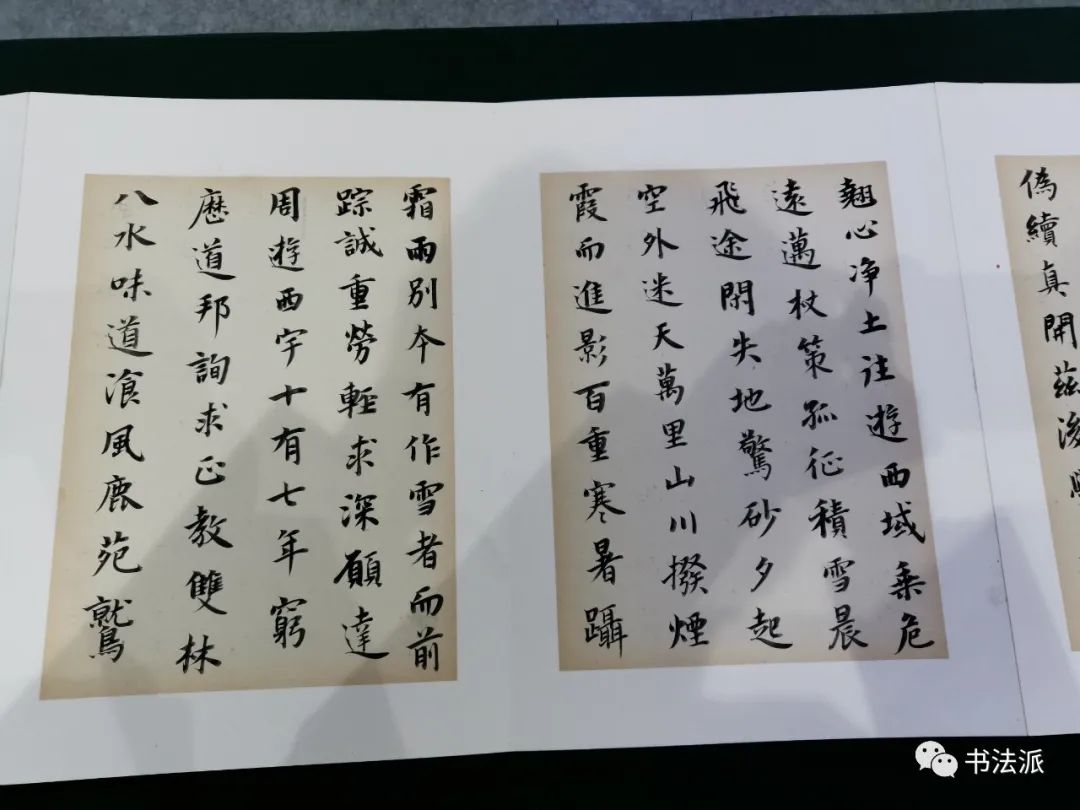 偽續真開茲後
翹心净土往遊西域乘危
遠邁杖策孤征積雪晨
飛途閒失地驚砂夕起
空外迷天萬里山川撥煙
霞而進影百重寒暑躡
霜雨別夲有作雪者而前
踪誠重勞輕求深願達
周遊西宇十有七年窮
歷道邦詢求正教雙林
八水味道湌風鹿苑鷲
书法派